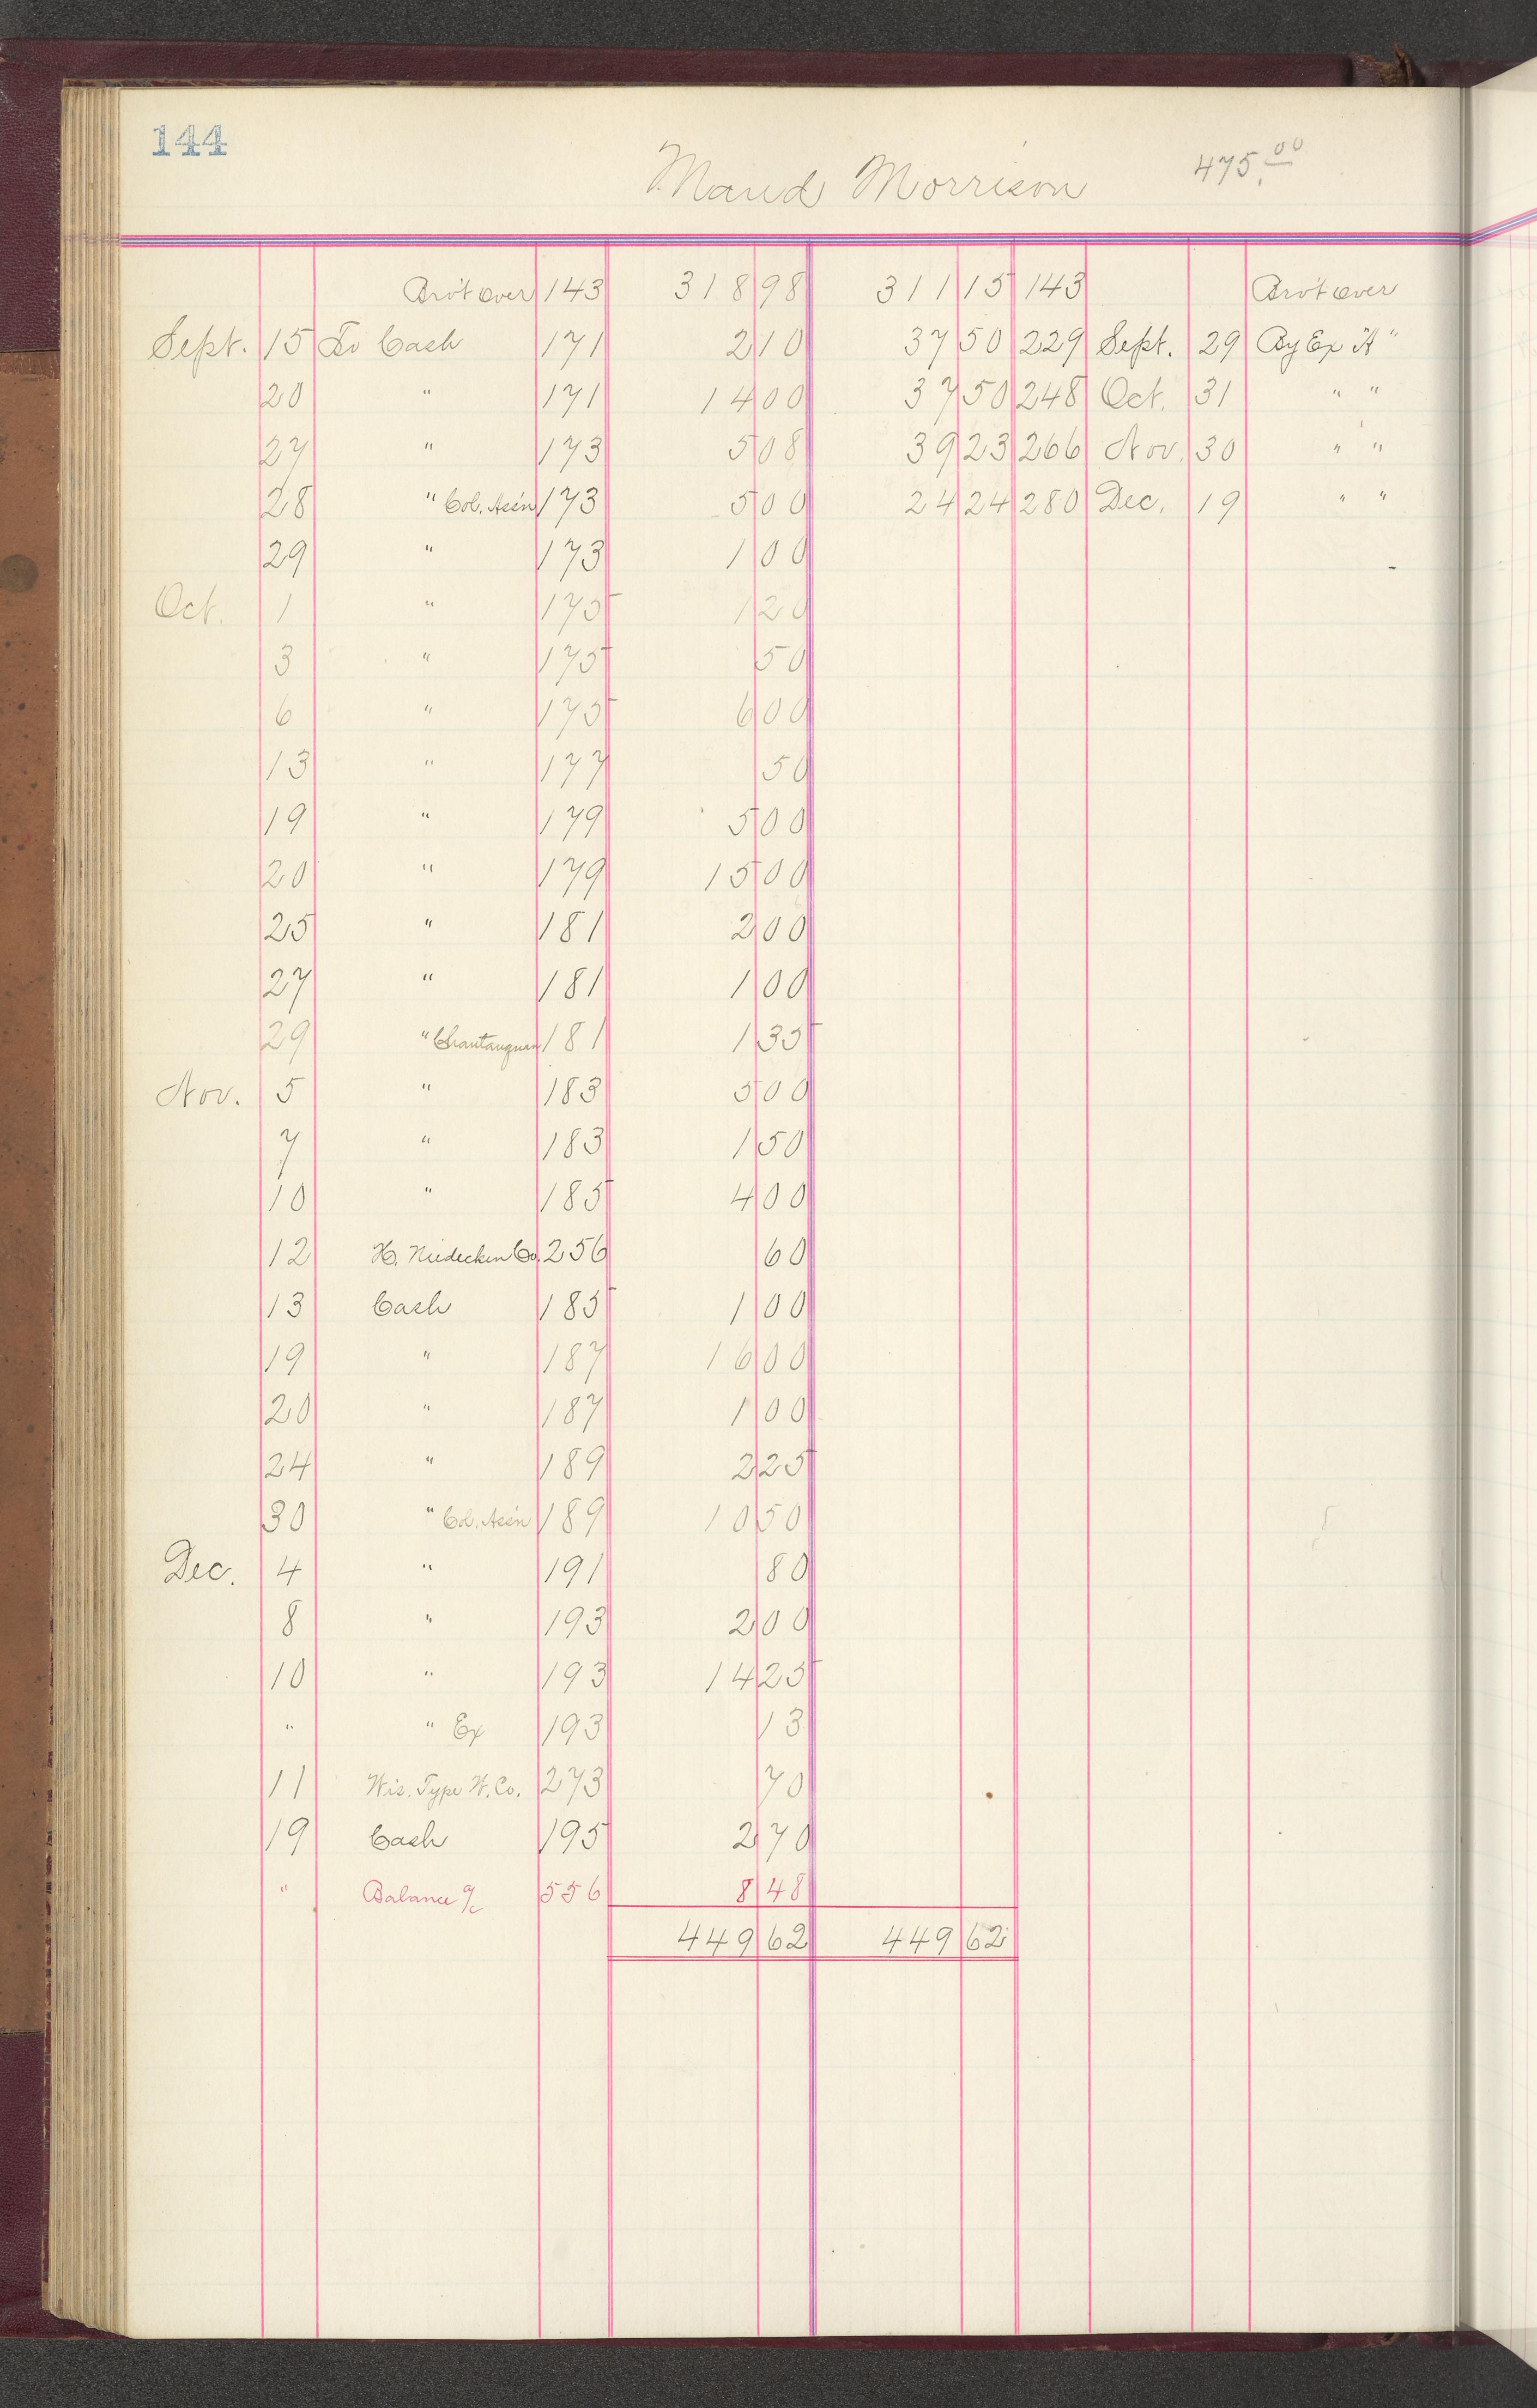 144
Maud Morrison 475.00
Bro't over 143 318 98 311 15 143 Bro't over
Sept. 15 To Cash 171 2 10 37 50 229 Sept. 29 By Ex "A"
20 " 171 14 00 37 50 248 Oct. 31 " "
27 " 173 5 08 39 23 266 Nov. 30 " "
28 " Col. Ass'n 173 5 00 24 24 280 Dec. 19 " "
29 " 173 1 00
Oct. 1 " 175 1 20
3 " 175 50
6 " 175 6 00
13 " 177 50
19 " 179 5 00
20 " 179 15 00
25 " 181 2 00
27 " 181 1 00
29 " Chautauquan 181 1 35
Nov. 5 " 183 5 00
7 " 183 1 50
10 " 185 4 00
12 H. Niedecken Co. 256 60
13 Cash 185 1 00
19 " 187 16 00
20 " 187 1 00
24 " 189 2 25
30 " Col. Ass'n 189 10 50
Dec. 4 " 191 80
8 " 193 2 00
10 " 193 14 25
" " Ex 193 13
11 Wis. Type W. Co. 273 70
19 Cash 195 2 70
" Balance a/c 556 8 48
449 62 449 62